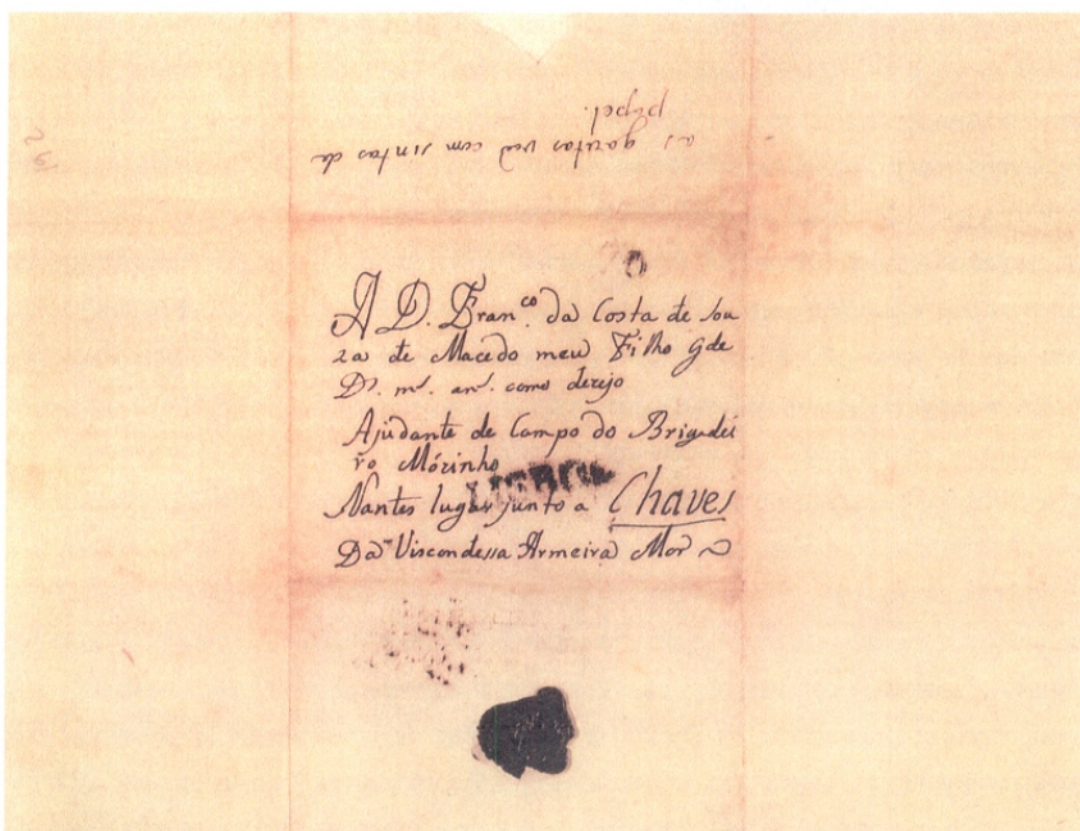 as gavetas vão com sintas de
papel.
A D. Fran.co da Costa de Sou
za de Macedo meu Filho G de
D.s m.s an.s como dezejo
Ajudante de Campo do Brigadei
ro Môzinho
LISBOA
Nantes lugar junto a Chaves
Da Viscondessa Armeira Mor